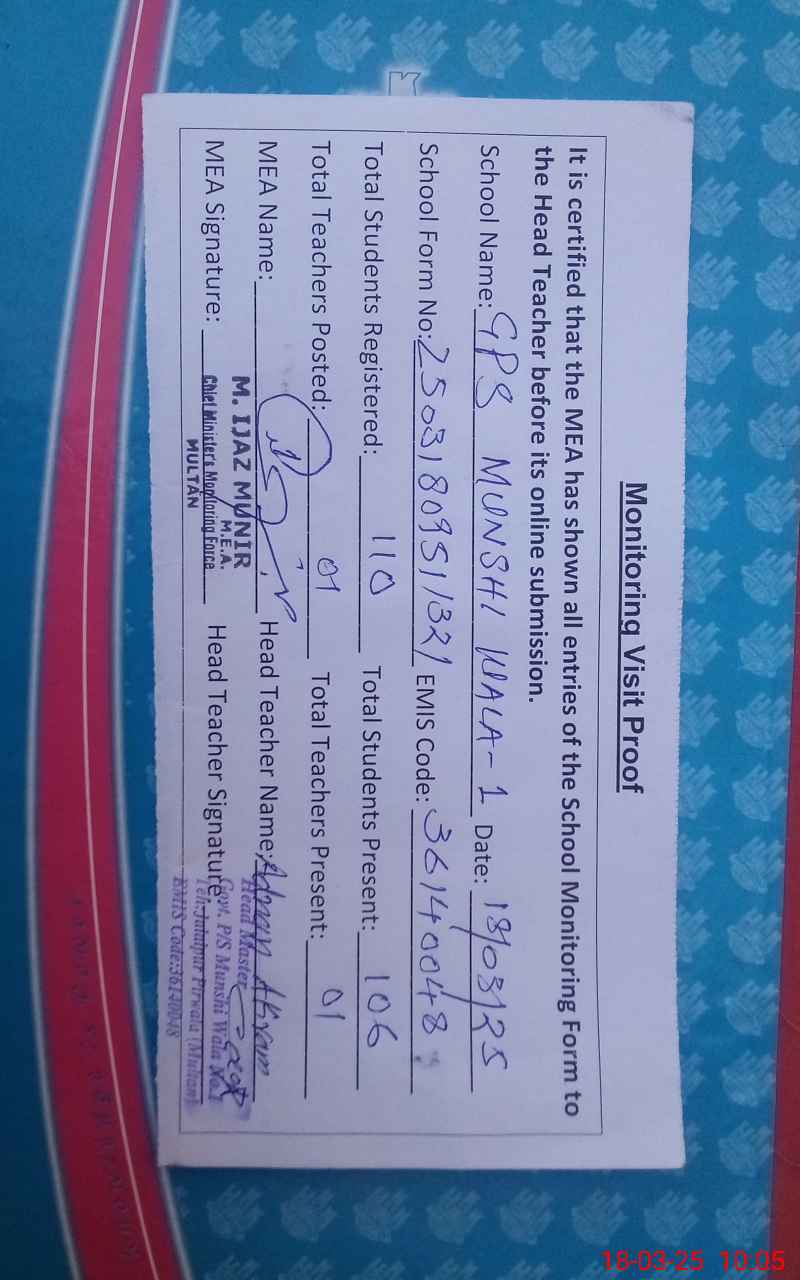 Monitoring Visit Proof
It is certified that the MEA has shown all entries of the School Monitoring Form to
the Head Teacher before its online submission.
School Name: GPS MUNSHI WALA-1 Date: 18/03/25
School Form No: 25031809511321 EMIS Code: 36140048
Total Students Registered: 110 Total Students Present: 106
Total Teachers Posted: 01 Total Teachers Present: 01
MEA Name: Head Teacher Name: Adnan Akram
M. IJAZ MUNIR
M.E.A.
MEA Signature: Head Teacher Signature:
Chief Minister's Monitoring Force
MULTAN
Head Master
Govt. P/S Munshi Wala No.1
Teh: Jalalpur Pirwala (Multan)
EMIS Code:36140048
18-03-25 10:05